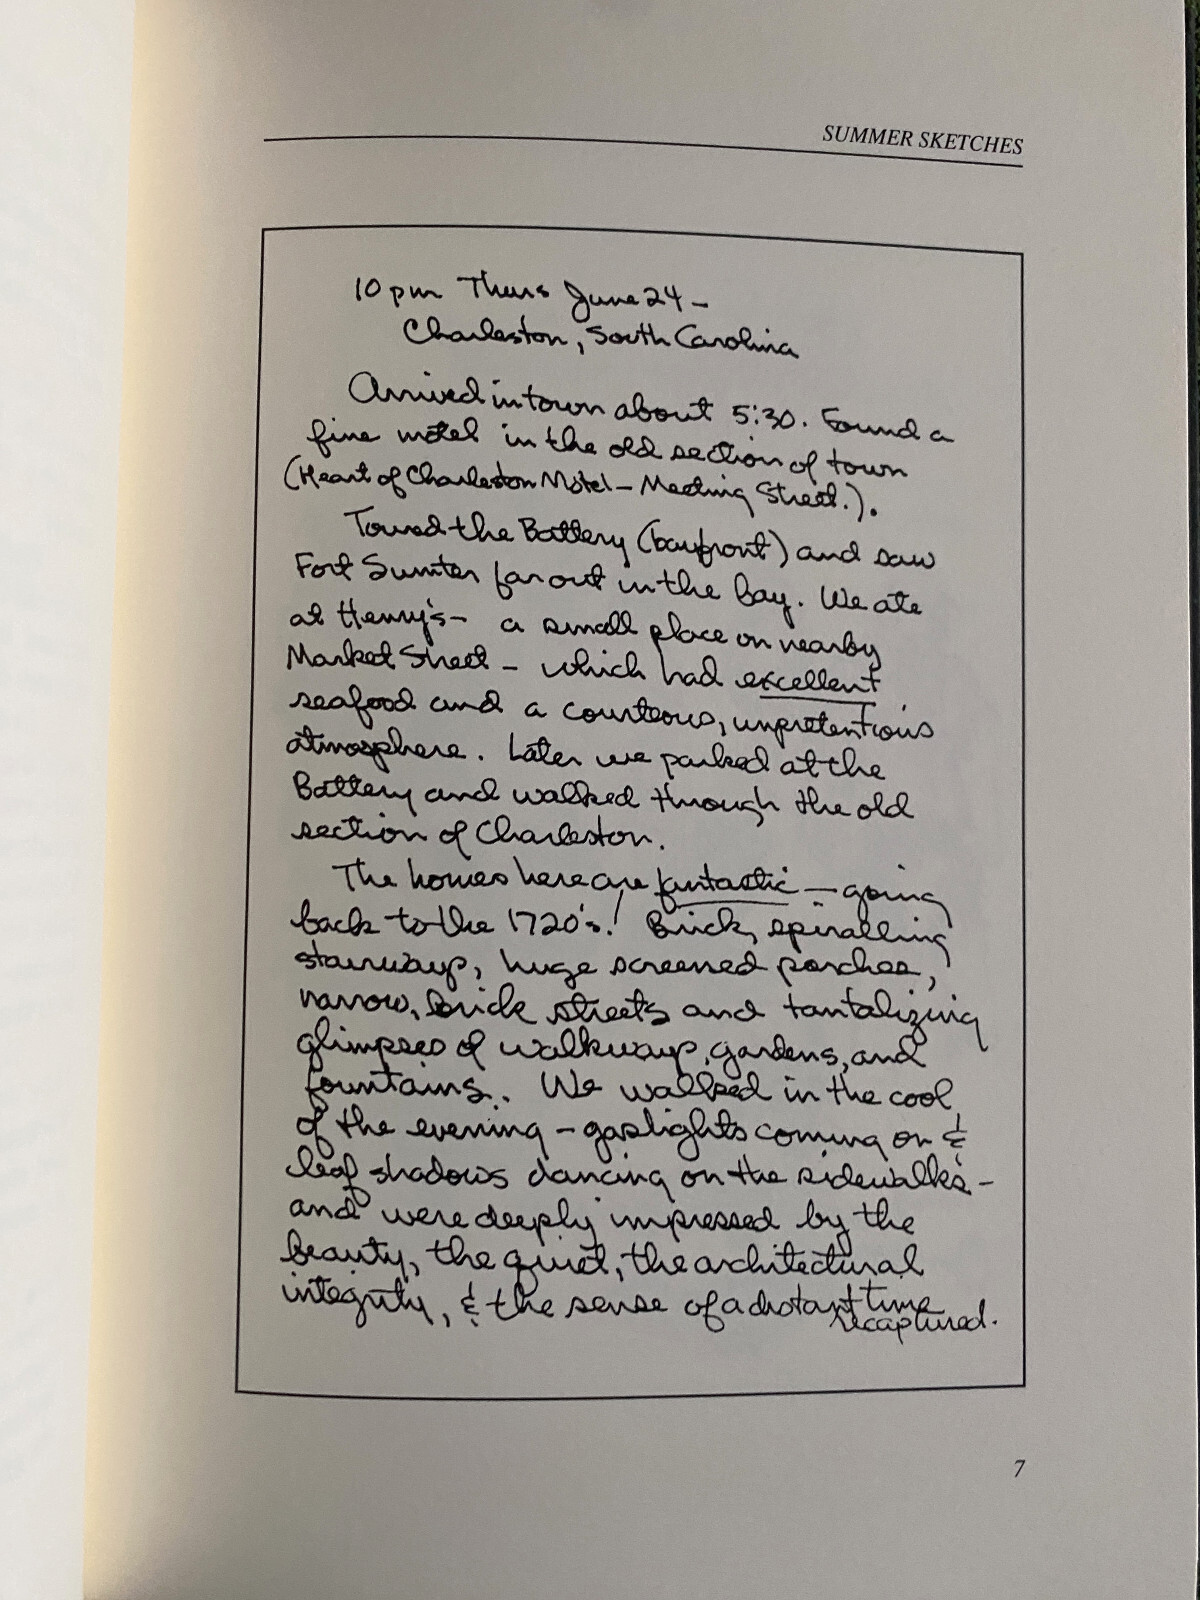 SUMMER SKETCHES
10 pm Thurs June 24 –
Charleston, South Carolina
Arrived in town about 5:30. Found a
fine motel in the old section of town
(Heart of Charleston Motel – Meeting Street.).
Toured the Battery (bayfront) and saw
Fort Sumter far out in the bay. We ate
at Henry's – a small place on nearby
Market Street – which had excellent
seafood and a courteous, unpretentious
atmosphere. Later we parked at the
Battery and walked through the old
section of Charleston.
The homes here are fantastic – going
back to the 1720's! Brick, spiralling
stairways, huge screened porches,
narrow, brick streets and tantalizing
glimpses of walkways, gardens, and
fountains. We walked in the cool
of the evening – gaslights coming on &
leaf shadows dancing on the sidewalks –
and were deeply impressed by the
beauty, the quiet, the architectural
integrity, & the sense of a distant time
recaptured.
7